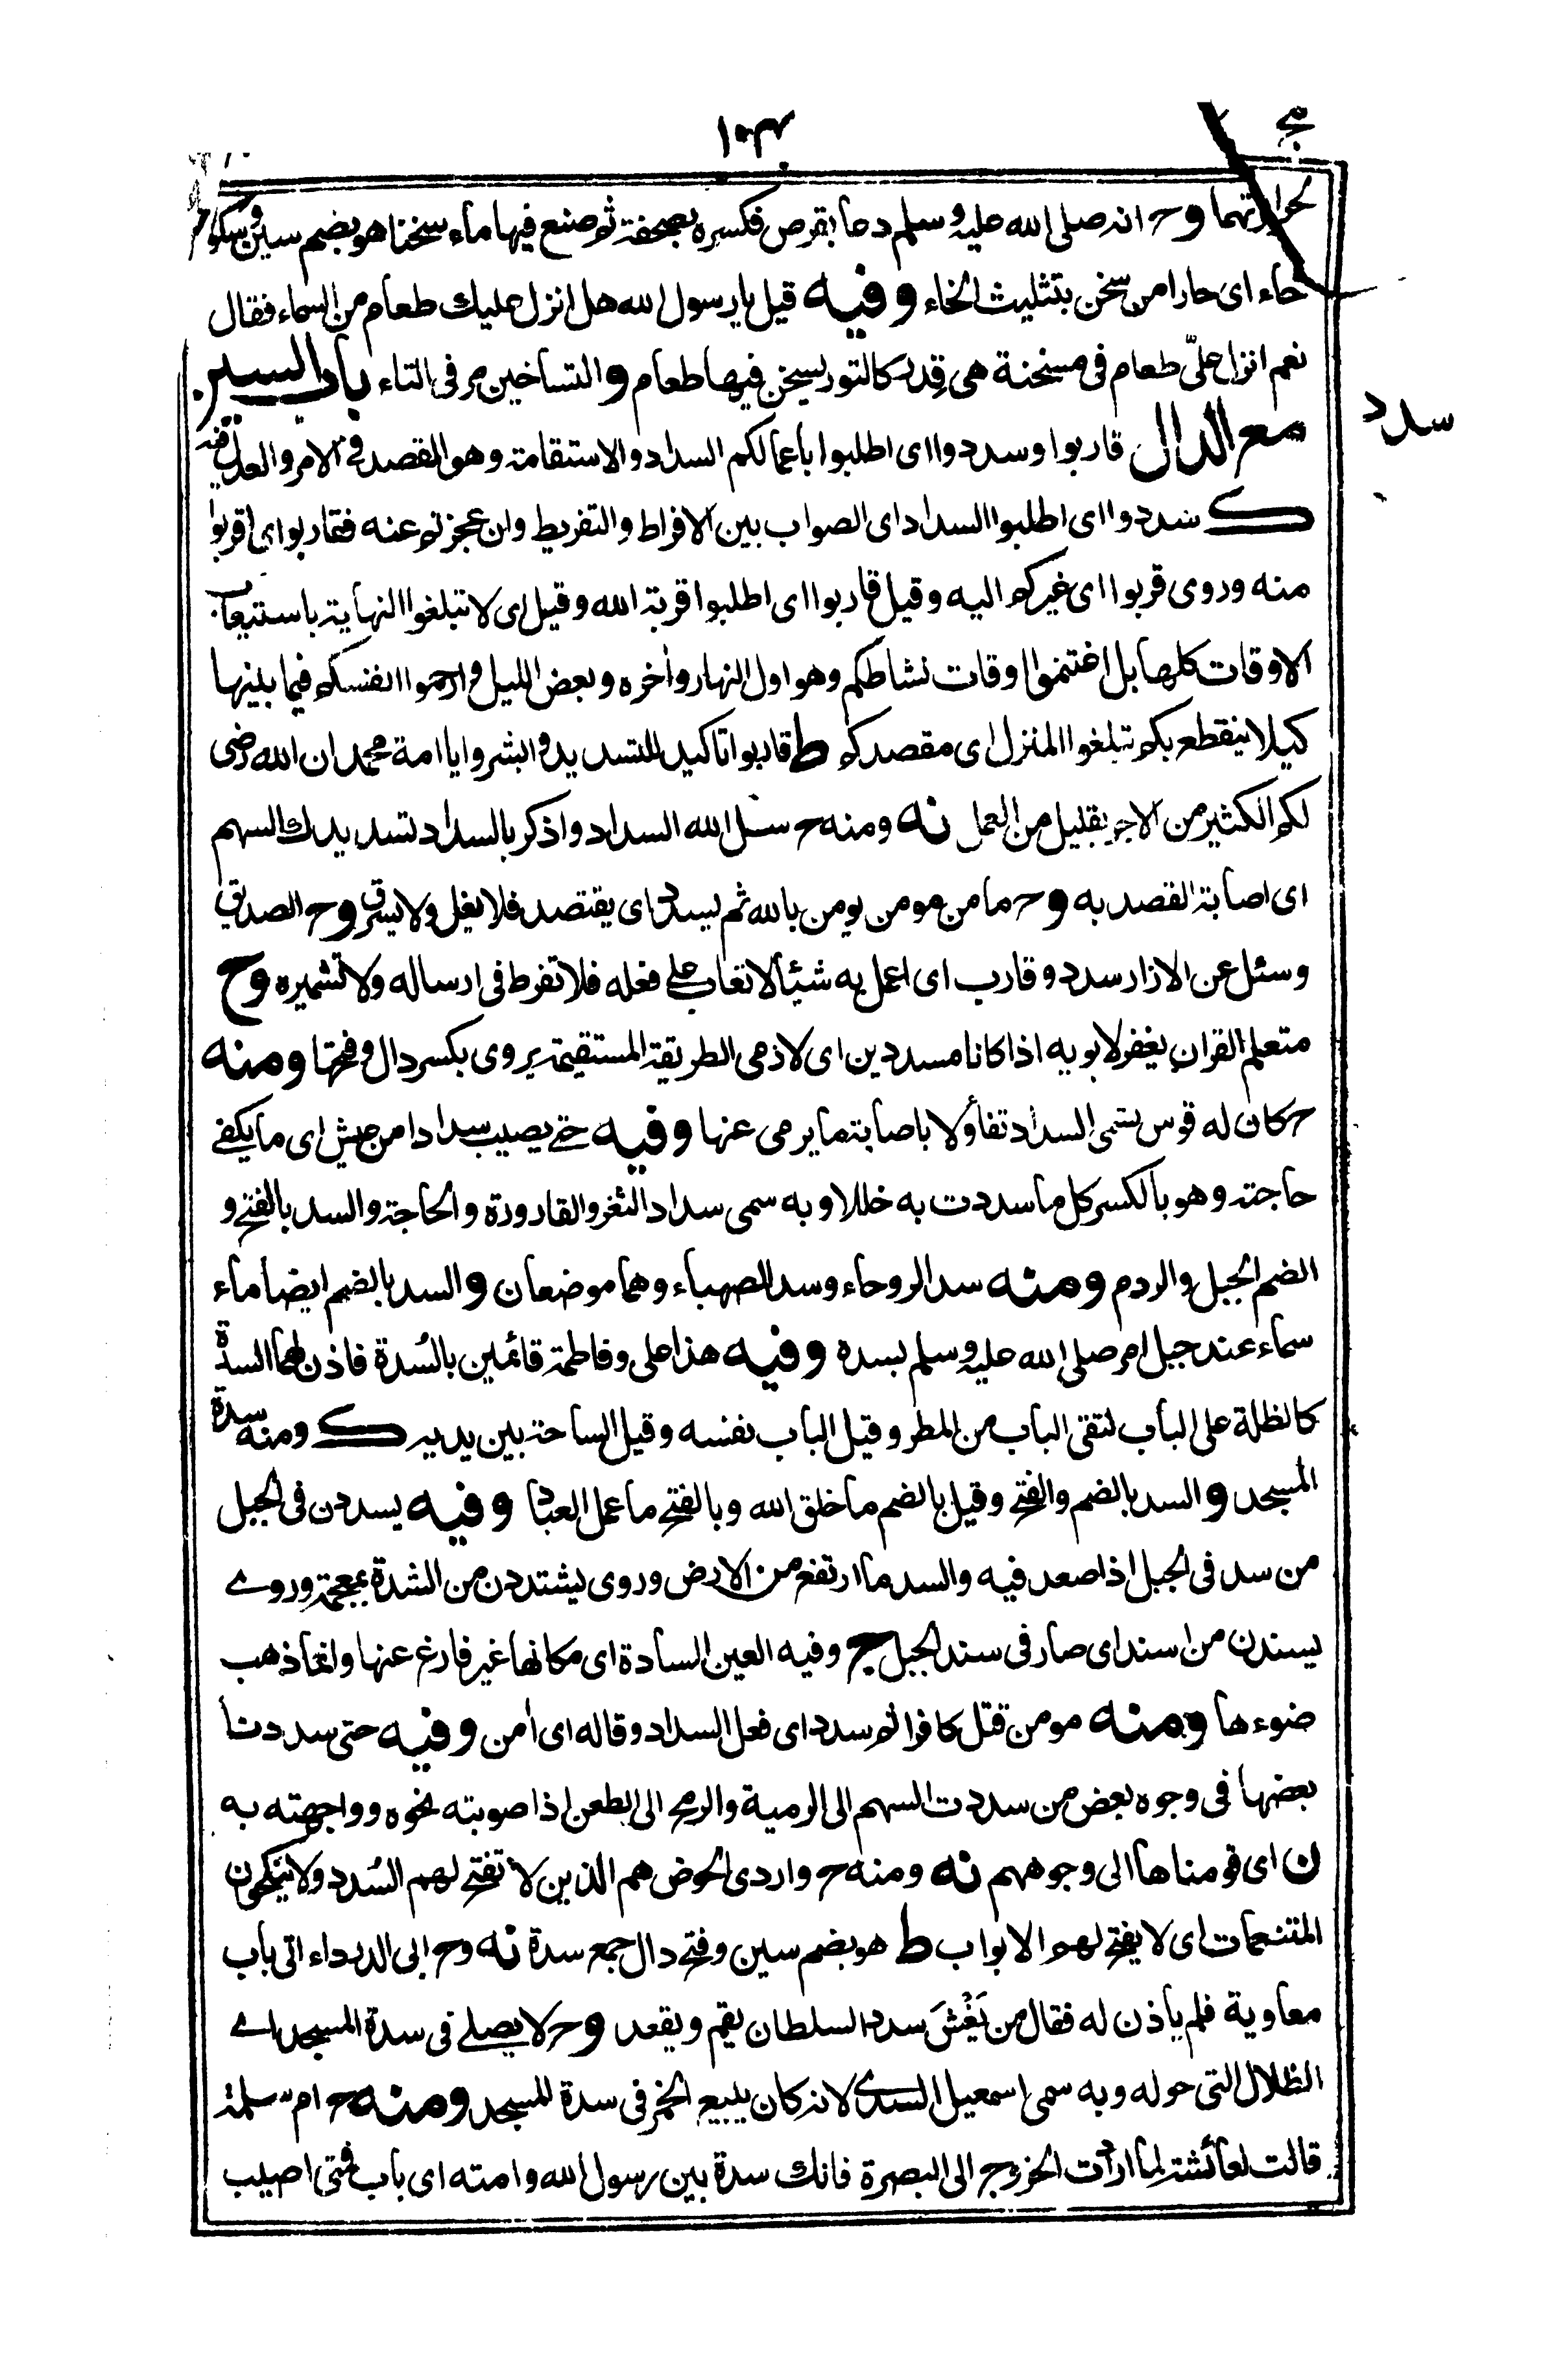 ١٠٣
لحرارتهما وح انه صلى الله عليه وسلم دعا بقرص فكسره بصحفة ثم صنع فيها ماء سخنا هو بضم سين وسكون
خاء اى حارا من سخن بتثليث الخاء وفيه قيل يا رسول الله هل انزل عليك طعام من السماء فقال
نعم انزل علىّ طعام فى مسخنة هى قِدر كالتور يسخن فيها طعام والتساخين مر فى التاء باب السين
سدد
مع الدال قاربوا وسددوا اى اطلبوا باعمالكم السداد والاستقامة وهو القصد فى الامر والعدل فيه
ك سددوا اى اطلبوا السداد اى الصواب بين الافراط والتفريط وان عجزتم عنه فقاربوا اى اقربوا
منه وروى قربوا اى غيركم اليه وقيل قاربوا اى اطلبوا قربة الله وقيل اى لا تبلغوا النهاية باستيعاب
الاوقات كلها بل اغتنموا اوقات نشاطكم وهو اول النهار وأخره وبعض الليل وارحموا انفسكم فيما بينها
كيلا ينقطع بكم تبلغوا المنزل اى مقصدكم ط قاربوا تاكيد للتسديد وابشروا يا امة محمد ان الله رضى
لكم الكثير من الاجر بقليل من العمل نه ومنه ح سل الله السداد واذكر بالسداد تسديدك السهم
اى اصابة القصد به وح ما من مومن يومن بالله ثم يسدد اى يقتصد فلا يغل ولا يسرق وح الصديق
وسئل عن الازار سدد وقارب اى اعمل به شيئا لا تعاب على فعله فلا تفرط فى ارساله ولا تشميره وح
متعلم القران يغفر لابويه اذا كانا مسددين اى لازمى الطريقة المستقيمة يروى بكسر دال وفتحها ومنه
ح كان له قوس يسمى السداد تفاؤلا باصابة ما يرمى عنها وفيه حتى يصيب سدادا من عيش اى ما يكفى
حاجته وهو بالكسر كل ما سددت به خللا وبه سمى سداد الثغر والقارورة والحاجة والسد بالفتح و
الضم الجبل والردم ومنه سد الروحاء وسد الصهباء وهما موضعان والسد بالضم ايضا ماء
سماء عند جبل امر صلى الله عليه وسلم بسده وفيه هذا على وفاطمة قائمين بالسُدة فاذن لهما السدة
كالظلة على الباب لتقى الباب من المطر وقيل الباب نفسه وقيل الساحة بين يديه ك ومنه سدة
المسجد والسد بالضم والفتح وقيل بالضم ما خلق الله وبالفتح ما عمل العباد وفيه يسددن فى الجبل
من سد فى الجبل اذا صعد فيه والسد ما ارتفع من الارض وروى يشتددن من الشدة بمعجمة وروى
يسندن من اسند اى صار فى سند الجبل ج وفيه العين السادة اى مكانها غير فارغ عنها وانما ذهب
ضوءها ومنه مومن قتل كافرا ثم سدد اى فعل السداد وقاله اى أمن وفيه حتى سددنا
بعضها فى وجوه بعض من سددت السهم الى الرمية والرمح الى الطعن اذا صوبته نحوه وواجهته به
ن اى قومناها الى وجوههم نه ومنه ح واردى الحوض هم الذين لا تفتح لهم السُدد ولا ينكحون
المتنعمات اى لا يفتح لهم الابواب ط هو بضم سين وفتح دال جمع سدة نه وح ابى الدرداء اتى باب
معاوية فلم ياذن له فقال من يَغْشَ سدد السلطان يقم ويقعد وح لا يصلى فى سدة المسجد اى
الظلال التى حوله وبه سمى اسمعيل السدى لانه كان يبيع الخمر فى سدة المسجد ومنه ح ام سلمة
قالت لعائشة لما ارادت الخروج الى البصرة فانك سدة بين رسول الله وامته اى باب فمتى اصيب